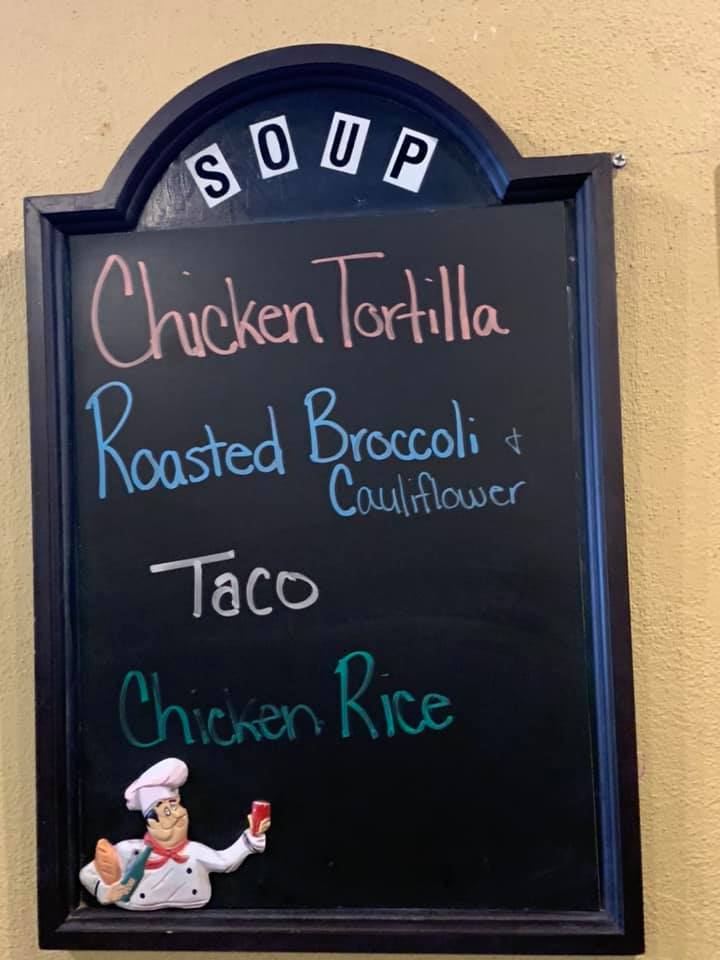 SOUP
Chicken Tortilla
Roasted Broccoli &
Cauliflower
Taco
Chicken Rice